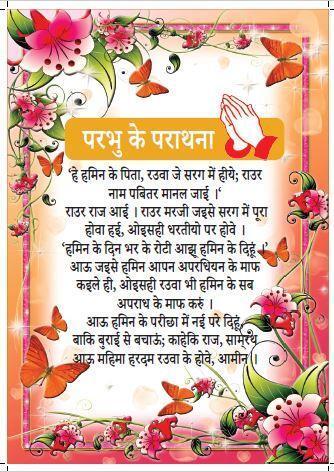 परभु के पराथना
'हे हमिन के पिता, रउवा जे सरग में हीये; राउर
नाम पबितर मानल जाई ।'
राउर राज आई । राउर मरजी जइसे सरग में पूरा
होवा हई, ओइसही धरतीयो पर होवे ।
'हमिन के दिन भर के रोटी आझ हमिन के दिहूं ।'
आऊ जइसे हमिन आपन अपरधियन के माफ
कइले ही, ओइसही रउवा भी हमिन के सब
अपराध के माफ करुं ।
आऊ हमिन के परीछा में नई पर दिहूं
बाकि बुराई से बचाऊं; काहेकि राज, सामरथ
आऊ महिमा हरदम रउवा के होवे, आमीन ।